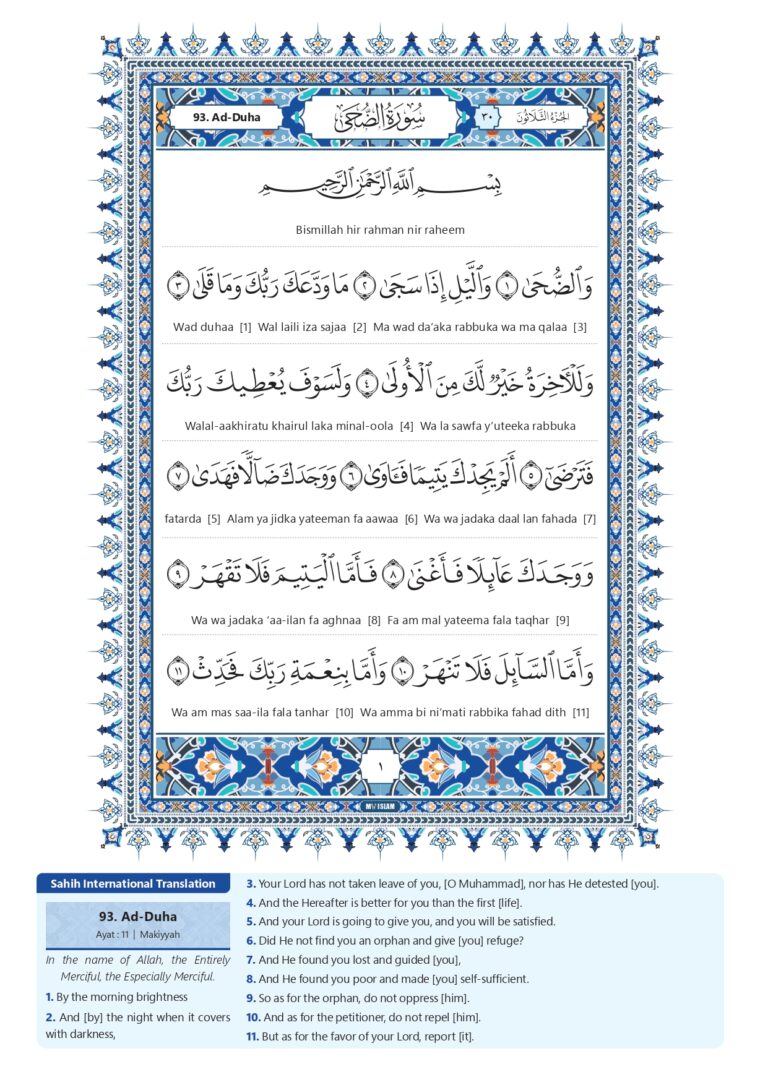 93. Ad-Duha
سُورَةُ الضُّحَىٰ
٣٠
الجُزءُ الثَّلَاثُونَ
بِسْمِ ٱللَّهِ ٱلرَّحْمَٰنِ ٱلرَّحِيمِ
Bismillah hir rahman nir raheem
وَٱلضُّحَىٰ ١ وَٱلَّيْلِ إِذَا سَجَىٰ ٢ مَا وَدَّعَكَ رَبُّكَ وَمَا قَلَىٰ ٣
Wad duhaa [1] Wal laili iza sajaa [2] Ma wad da’aka rabbuka wa ma qalaa [3]
وَلَلْـَٔاخِرَةُ خَيْرٌ لَّكَ مِنَ ٱلْأُولَىٰ ٤ وَلَسَوْفَ يُعْطِيكَ رَبُّكَ
Walal-aakhiratu khairul laka minal-oola [4] Wa la sawfa y’uteeka rabbuka
فَتَرْضَىٰٓ ٥ أَلَمْ يَجِدْكَ يَتِيمًا فَـَٔاوَىٰ ٦ وَوَجَدَكَ ضَآلًّا فَهَدَىٰ ٧
fatarda [5] Alam ya jidka yateeman fa aawaa [6] Wa wa jadaka daal lan fahada [7]
وَوَجَدَكَ عَآئِلًا فَأَغْنَىٰ ٨ فَأَمَّا ٱلْيَتِيمَ فَلَا تَقْهَرْ ٩
Wa wa jadaka ‘aa-ilan fa aghnaa [8] Fa am mal yateema fala taqhar [9]
وَأَمَّا ٱلسَّآئِلَ فَلَا تَنْهَرْ ١٠ وَأَمَّا بِنِعْمَةِ رَبِّكَ فَحَدِّثْ ١١
Wa am mas saa-ila fala tanhar [10] Wa amma bi ni’mati rabbika fahad dith [11]
١
MY ISLAM
Sahih International Translation
93. Ad-Duha
Ayat : 11 | Makiyyah
In the name of Allah, the Entirely
Merciful, the Especially Merciful.
1. By the morning brightness
2. And [by] the night when it covers
with darkness,
3. Your Lord has not taken leave of you, [O Muhammad], nor has He detested [you].
4. And the Hereafter is better for you than the first [life].
5. And your Lord is going to give you, and you will be satisfied.
6. Did He not find you an orphan and give [you] refuge?
7. And He found you lost and guided [you],
8. And He found you poor and made [you] self-sufficient.
9. So as for the orphan, do not oppress [him].
10. And as for the petitioner, do not repel [him].
11. But as for the favor of your Lord, report [it].